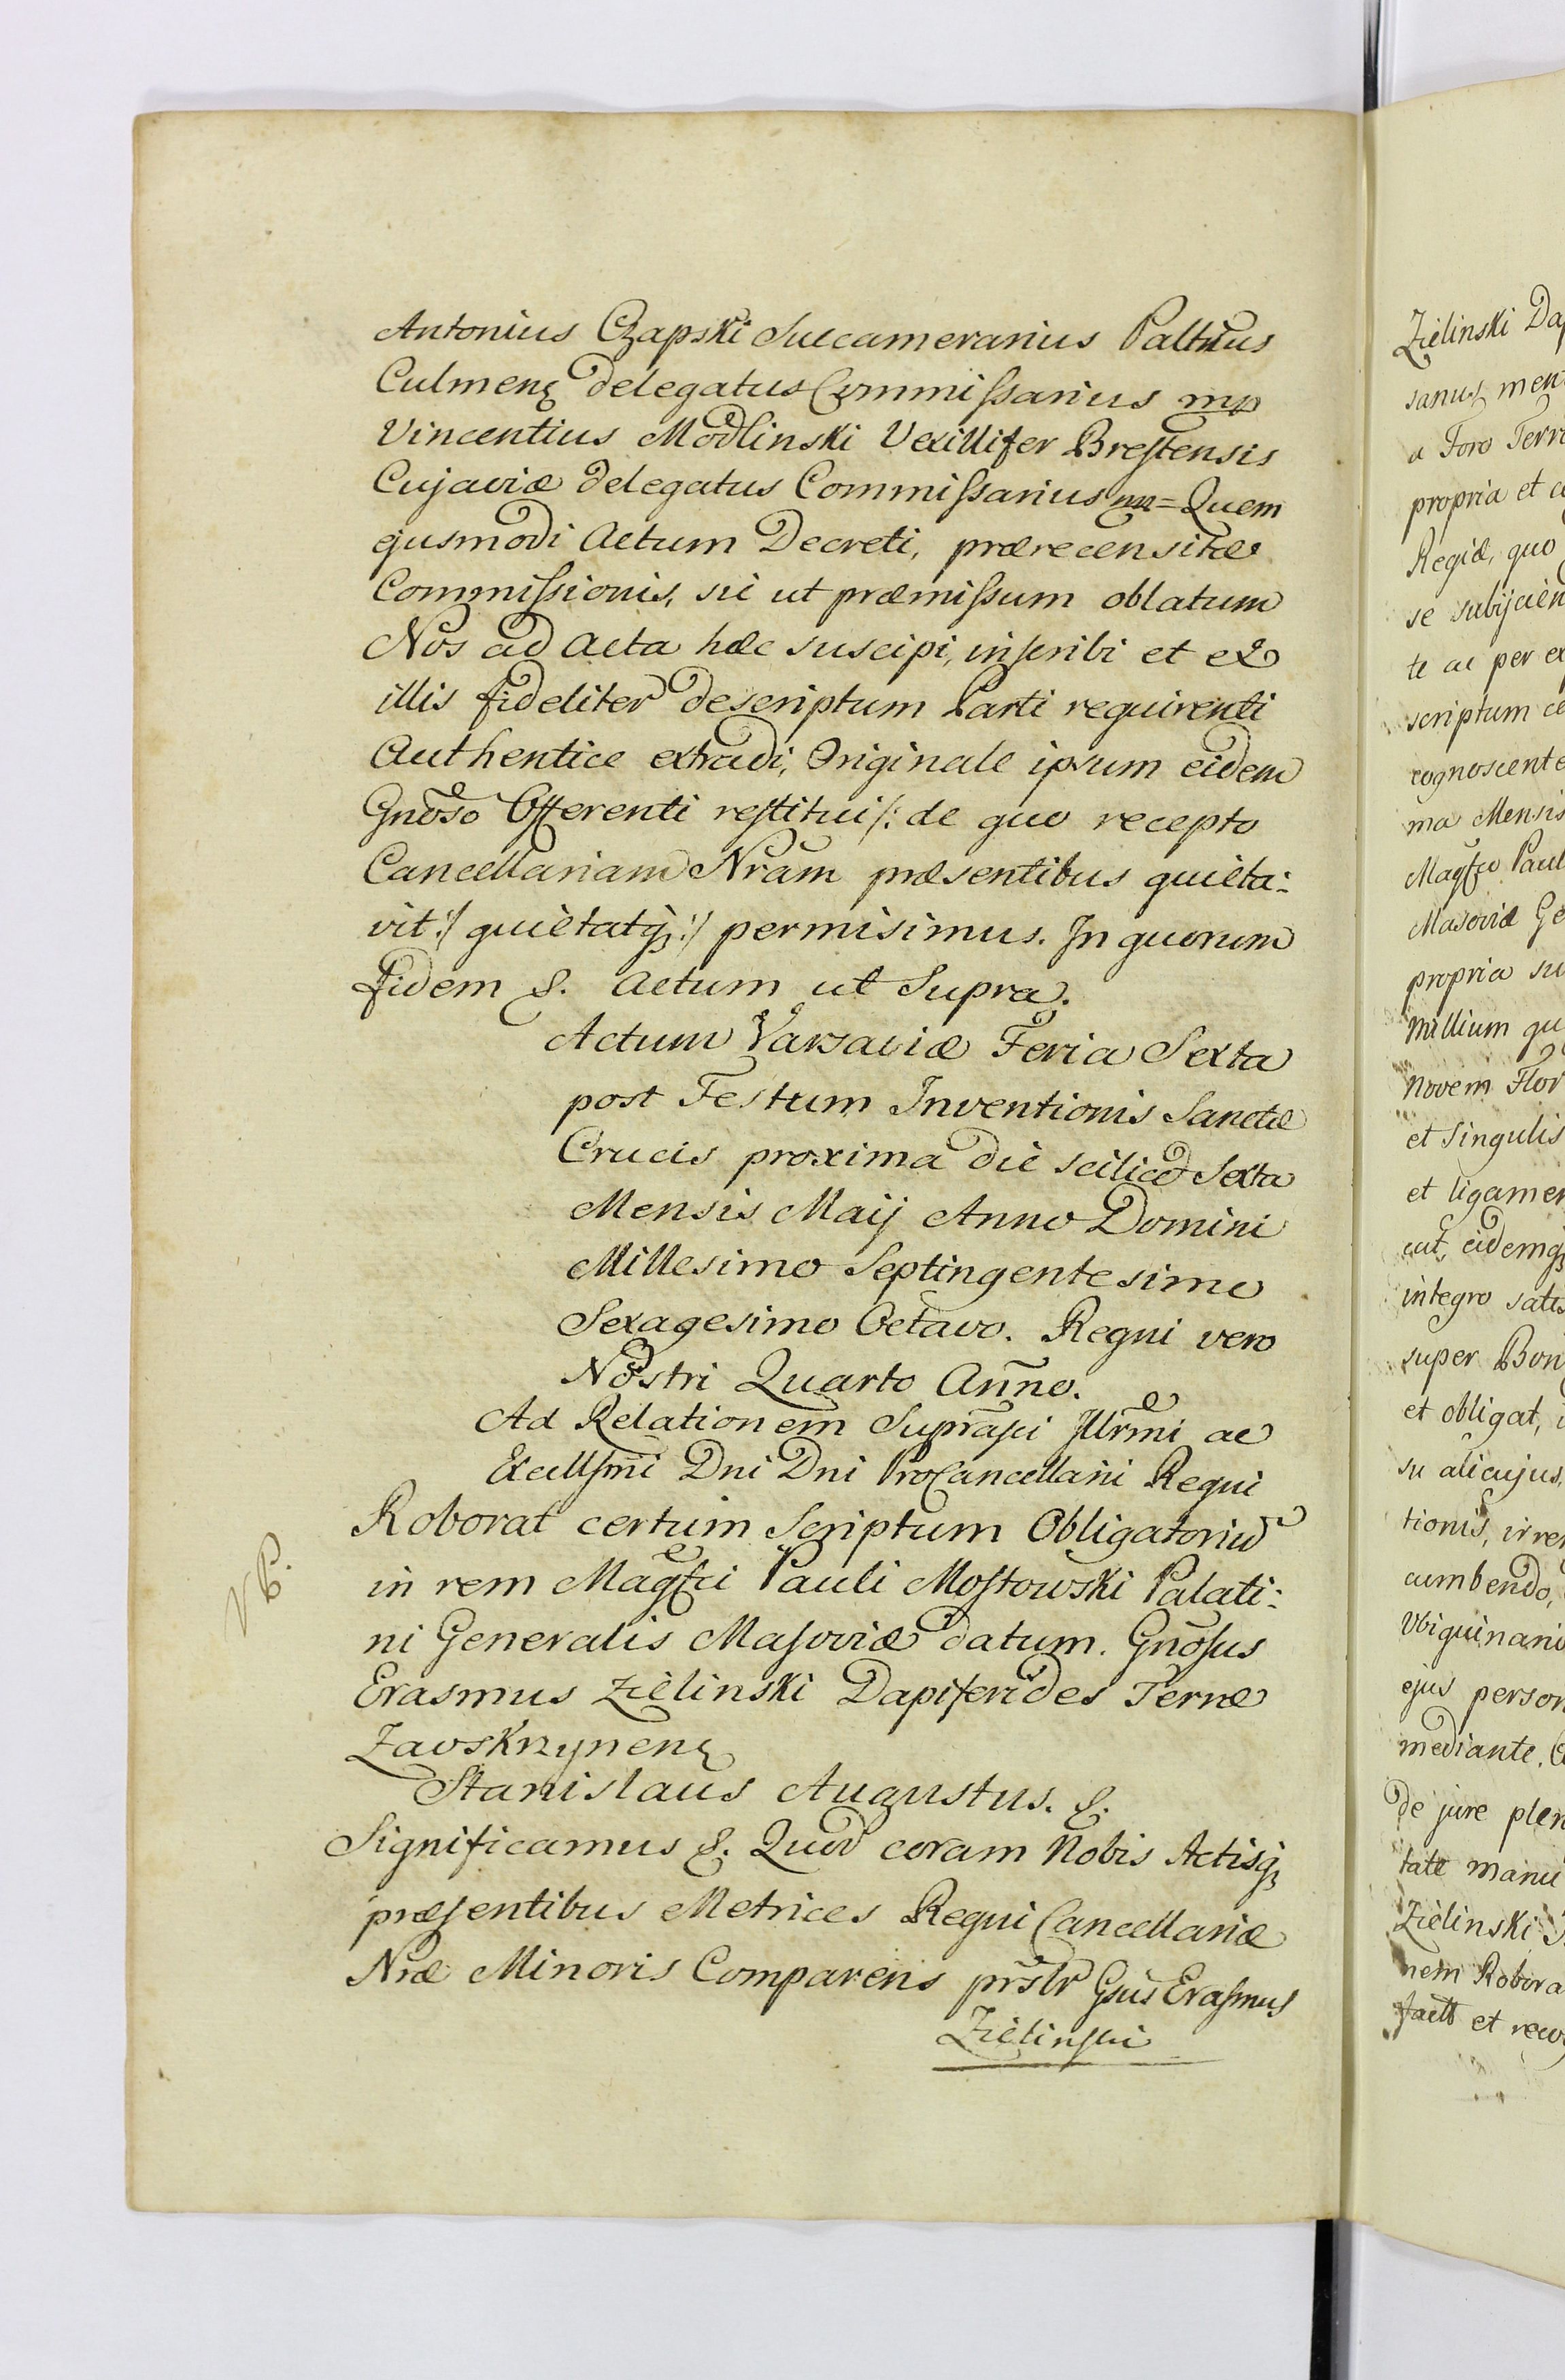 Antonius Czapski Succamerarius Paltnus
Culmenę delegatus Commissarius mp
Vincentius Modlinski Vexillifer Brestensis
Cujaviæ delegatus Commissarius mp = Quem
ejusmodi Actum Decreti, prærecensitæ
Commissionis, sic ut præmissum oblatum
Nos ad Acta hæc suscipi, inscribi et ex
illis fideliter descriptum Parti requirenti
Authentice extradi, Originale ipsum eidem
Gnoso Offerenti restitui /: de quo recepto
Cancellariam Nram præsentibus quieta-
vit :/ quietatq :/ permisimus. In quorum
fidem &. Actum ut Supra.
Actum Varsaviæ Feria Sexta
post Festum Inventionis Sanctæ
Crucis proxima die scilicet Sexta
Mensis Maij Anno Domini
Millesimo Septingentesimo
Sexagesimo Octavo. Regni vero
Nostri Quarto Anno.
Ad Relationem Suprascri Illrmi ac
Excellsmi Dni Dni ProCancellarii Regni
Roborat certum Scriptum Obligatoriu
in rem Magfci Pauli Mostowski Palati-
ni Generalis Masoviæ datum. Gnosus
Erasmus Zielinski Dapiferides Terræ
Zavskrzynenę
Stanislaus Augustus. &.
Significamus &. Quod coram Nobis Actisq
præsentibus Metrices Regni Cancellariæ
Nræ Minoris Comparens prslr Gsus Erasmus
Zielinski
Zielinski Dap
a Foro Terre
propria et c
Regiæ, quo
se subijcien
te ac per ex
scriptum ce
cognoscente
ma Mensis
Magfco Paul
Masoviæ Ge
propria su
millium qu
Novem Flor
et Singulis
et ligamen
cut, eidemq
integro satis
super Bon
et obligat, i
su alicujus,
tionis, irre
cumbendo,
ejus person
mediante.
de jure plen
tate manu
Zielinski
nem Robora